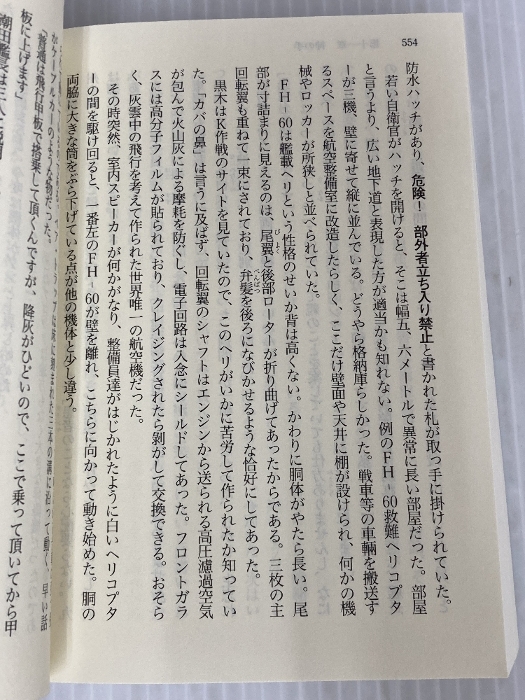 554
防水ハッチがあり、危険！　部外者立ち入り禁止と書かれた札が取っ手に掛けられていた。
若い自衛官がハッチを開けると、そこは幅五、六メートルで異常に長い部屋だった。部屋
と言うより、広い地下道と表現した方が適当かも知れない。例のＦＨ‐60救難ヘリコプタ
ーが三機、壁に寄せて縦に並んでいる。どうやら格納庫らしかった。戦車等の車輛を搬送す
るスペースを航空整備室に改造したらしく、ここだけ壁面や天井に棚が設けられ、何かの機
械やロッカーが所狭しと並べられていた。
ＦＨ‐60は艦載ヘリという性格のせいか背は高くない。かわりに胴体がやたら長い。尾
部が寸詰まりに見えるのは、尾翼と後部ローターが折り曲げてあったからである。三枚の主
びよく
回転翼も重ねて一束にされており、弁髪を後ろになびかせるような恰好にしてあった。
べんぱつ
黒木はＫ作戦のサイトを見ていたので、このヘリがいかに苦労して作られたか知ってい
た。「カバの鼻」は言うに及ばず、回転翼のシャフトはエンジンから送られる高圧濾過空気
が包んで火山灰による摩耗を防ぐし、電子回路は入念にシールドしてあった。フロントガラ
スには高分子フィルムが貼られており、クレイジングされたら剝がして交換できる。おそら
く、灰雲中の飛行を考えて作られた世界唯一の航空機だった。
その時突然、室内スピーカーが何かがなり、整備員達がはじかれたように白いヘリコプタ
ーの間を駆け回ると、一番左のＦＨ‐60が壁を離れ、こちらに向かって動き始めた。胴の
両脇に大きな筒をぶら下げている点が他の機体と少し違う。
三本の溝に沿って動く、早い話
がケーブルカーのような物だった。
「普通は飛行甲板で搭乗して頂くんですが、降灰がひどいので、ここで乗って頂いてから甲
板に上げます」
潮田艦長は三人に説明